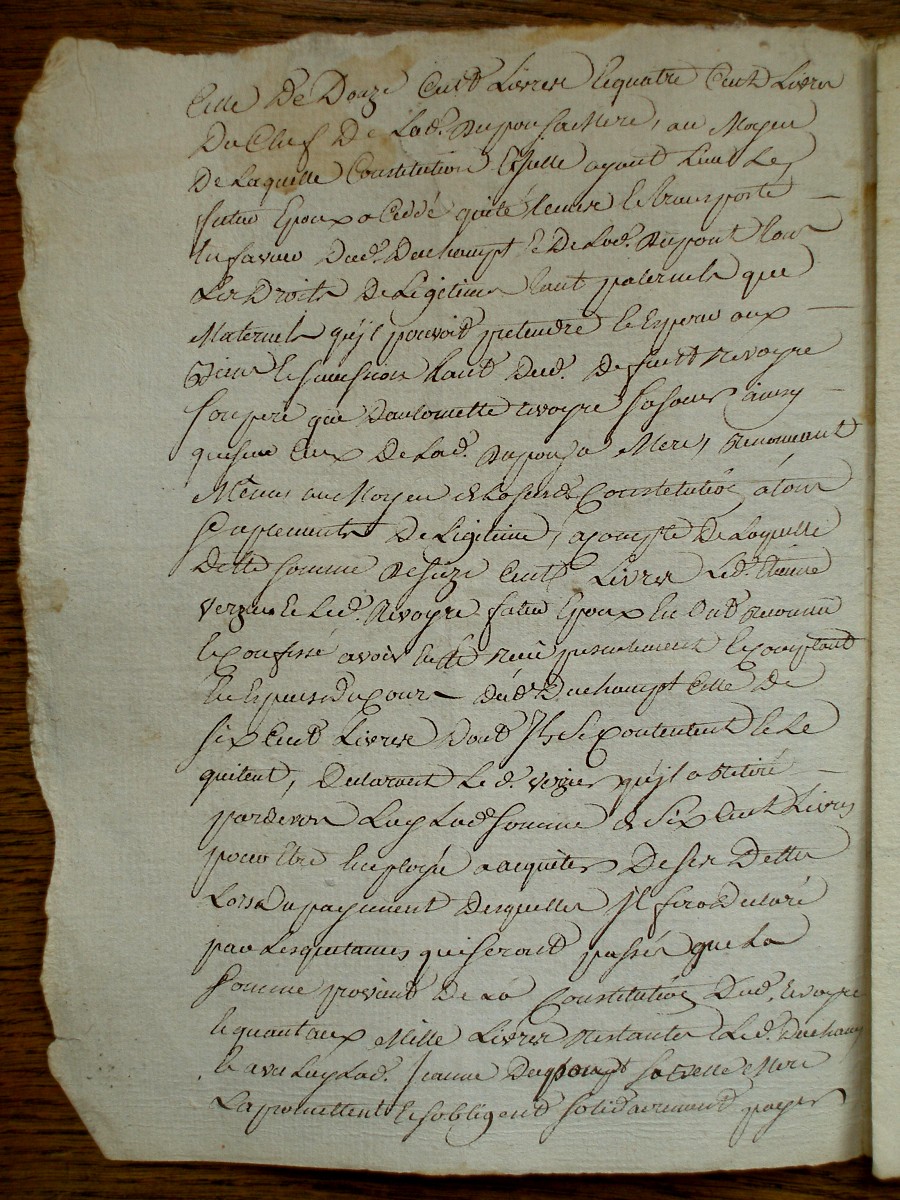 Celle De Douze Cent Livres et quatre Cent Livres
Du Chef De Lad. Dupon sa Mere, au Moyen
De Laquelle Constitution Icelle ayant lieu Le
futur Epoux a Ceddé quité remis et transporté
En faveur Dud. Duchampt et De Lad. Dupont tous
Les Droits De Légitime tant paternels que
Maternels qu'jl pouvoit pretendre et Esperer aux
Biens et successions tant Dud. Defunt Revoyre
son pere que D'antoinette Revoyre sa soeur ainsy
que sur Ceux De Lad. Dupon sa Mere, Renonceant
Même au Moyen de la susd. Constitution à tous
suplements De Légitime, a Compte De Laquelle
Dette somme De seize Cents Livres Led. Etienne
Verzier et Led. Revoyre futur Epoux En Ont Reconnu
et Confessé avoir Eu et Reçu presentement et Comptant
En Especes Du Cours Dud. Duchampt Celle De
six Cent Livres Dont Jls se Contentent et Le
quitent, Declarant Led. Verzier qu'jl a Retiré
pardevers Luy Lad. somme de Six Cent Livres
pour Etre Employé a acquiter De ses Dettes
Lors Du payement Desquelles Jl sera Declaré
par Les quitances qui seront passés que La
somme provient De La Constitution Dud. Revoyre
et quant aux Mille Livres Restantes Led. Duchamp
et avec Luy Lad. Jeanne Dupompt sa belle Mere
La promettent et s'obligent solidairement payer